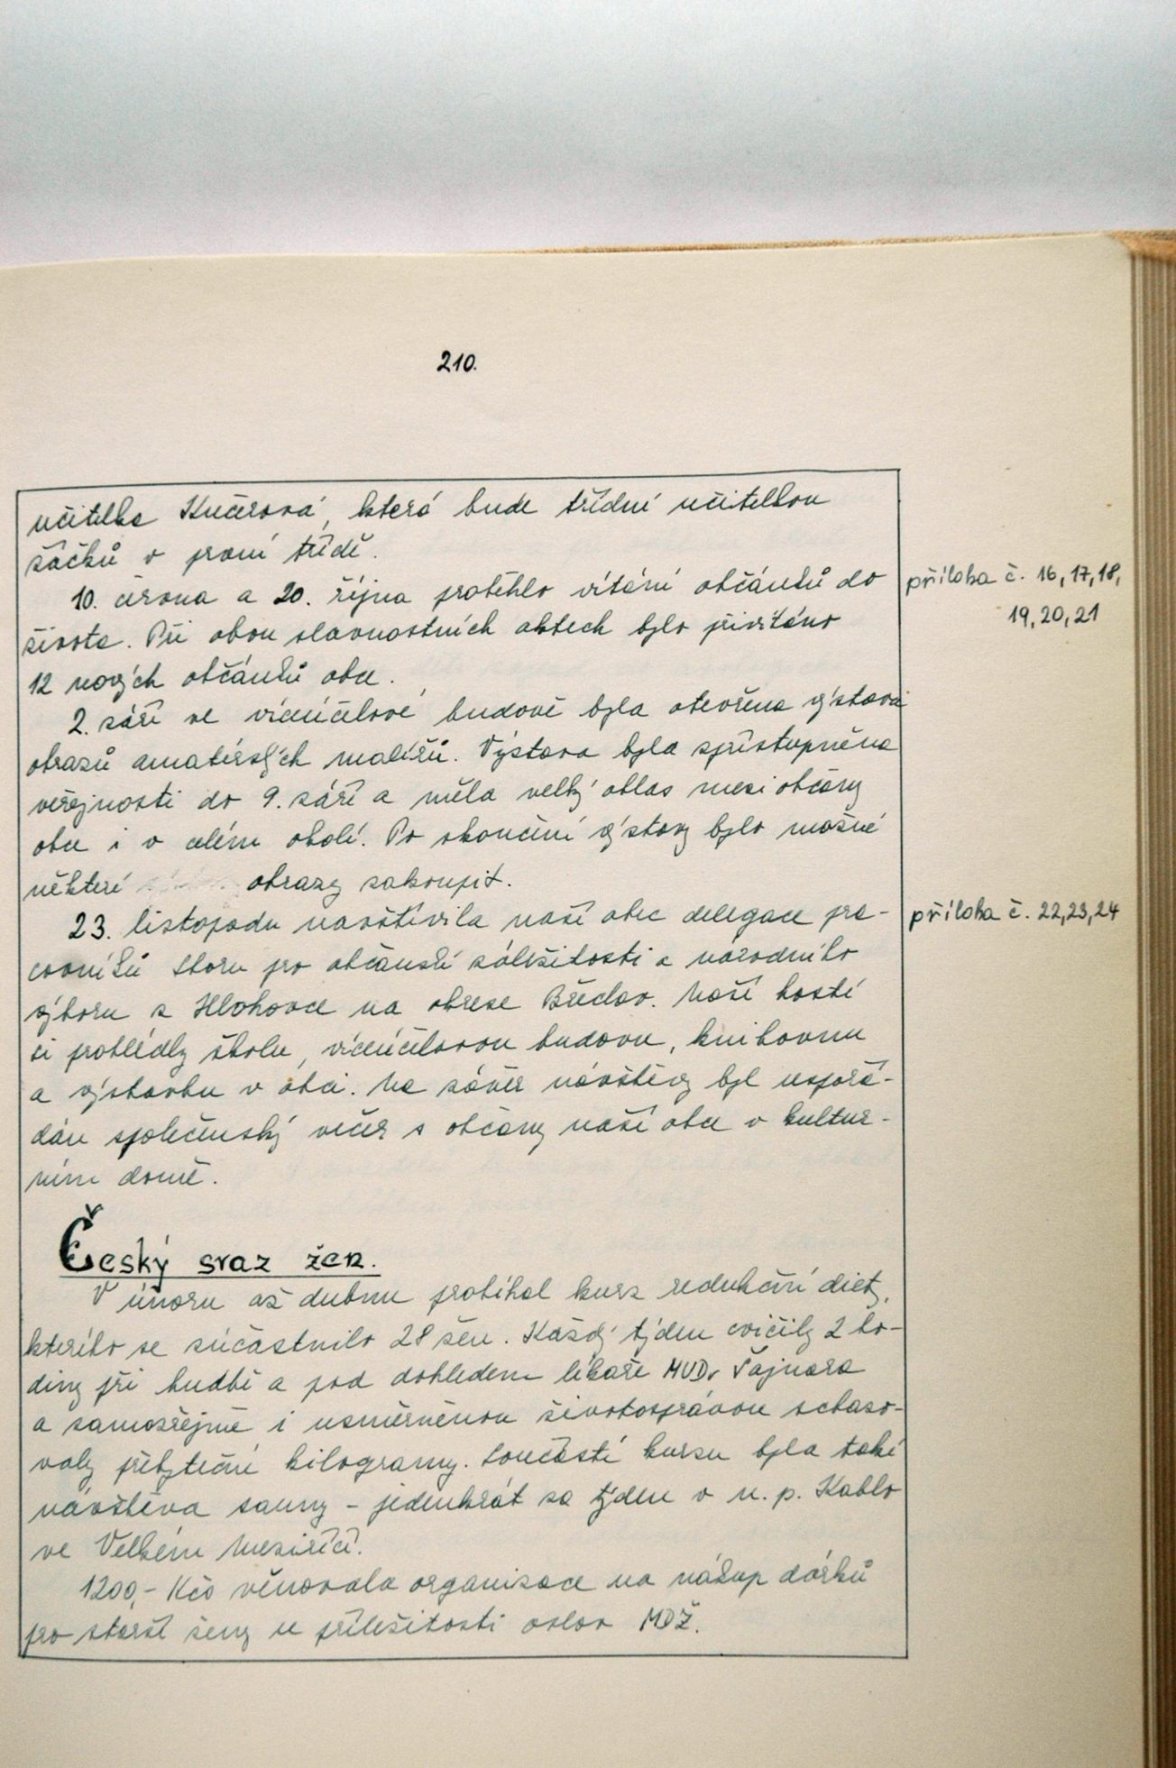 210.
učitelka Kučerová, která bude třídní učitelkou
žáčků v první třídě.
10. června a 20. října proběhlo vítání občánků do
života. Při obou slavnostních aktech bylo přivítáno
12 nových občánků obce.
příloha č. 16, 17, 18,
19, 20, 21
2. září ve víceúčelové budově byla otevřena výstava
obrazů amatérských malířů. Výstava byla zpřístupněna
veřejnosti do 9. září a měla velký ohlas mezi občany
obce i v celém okolí. Po skončení výstavy bylo možné
některé obrazy zakoupit.
23. listopadu navštívila naši obec delegace pra-
covníků Sboru pro občanské záležitosti a národního
výboru z Hlohovce na okrese Břeclav. Naši hosté
si prohlédly školu, víceúčelovou budovu, knihovnu
a výstavbu v obci. Na závěr návštěvy byl uspořá-
dán společenský večer s občany naší obce v kultur-
ním domě.
příloha č. 22, 23, 24
Český svaz žen.
V únoru až dubnu probíhal kurz redukční diety,
kterého se zúčastnilo 28 žen. Každý týden cvičily 2 ho-
diny při hudbě a pod dohledem lékaře MUDr Šajnara
a samozřejmě i usměrněnou životosprávou shazo-
valy přebytečné kilogramy. Součástí kursu byla také
návštěva sauny – jedenkrát za týden v n. p. Kablo
ve Velkém Meziříčí.
1200,- Kčs věnovala organizace na nákup dárků
pro starší ženy u příležitosti oslav MDŽ.